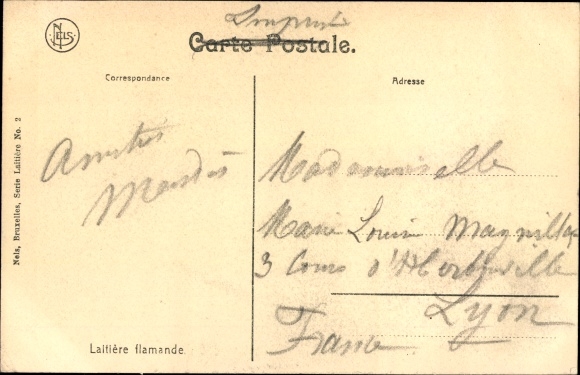 Imprimé
Carte Postale.
NELS
Correspondance
Adresse
Nels, Bruxelles, Serie Laitière No. 2
Amitiés
Mademoiselle
Marie Louise
3 Cours d'Herbouville
Lyon
France
Laitière flamande.